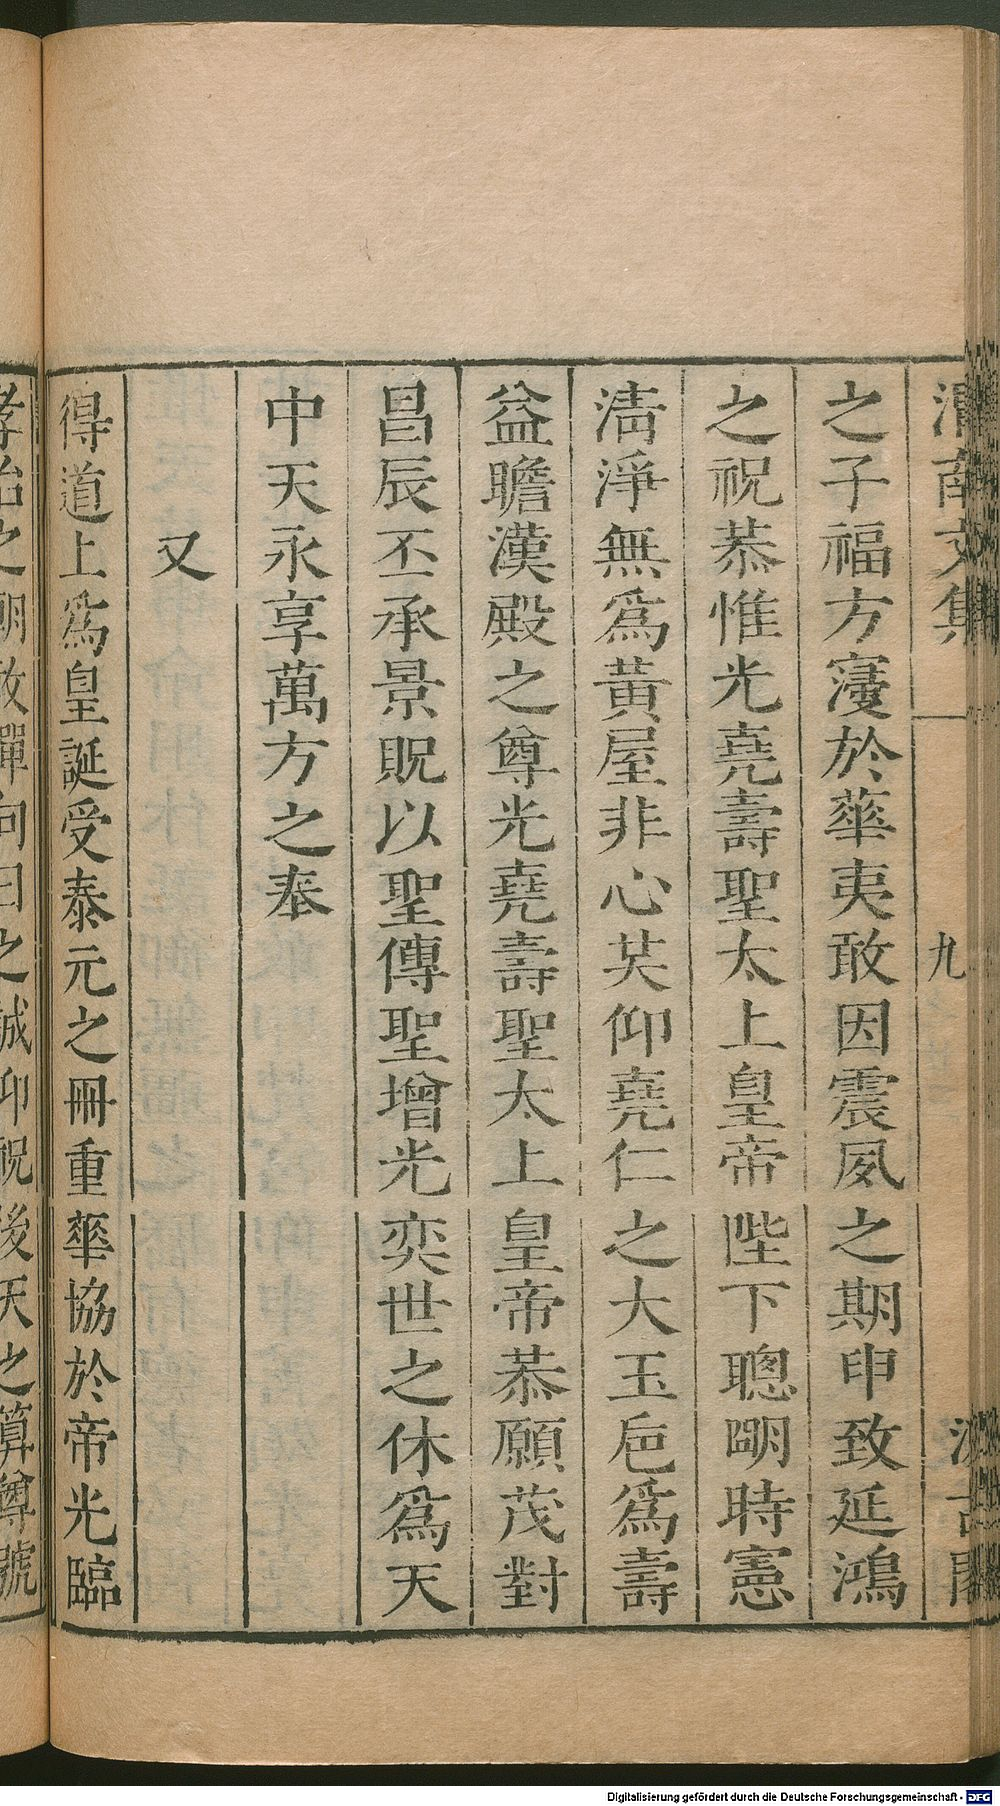 渭南文集 九 汲古閣
之子福方寖於華夷敢因震夙之期申致延鴻
之祝恭惟光堯壽聖太上皇帝陛下聰明時憲
清淨無爲黃屋非心共仰堯仁之大玉巵爲壽
益瞻漢殿之尊光堯壽聖太上皇帝恭願茂對
昌辰丕承景貺以聖傳聖增光奕世之休爲天
中天永享萬方之奉
又
得道上爲皇誕受泰元之冊重華協於帝光臨
孝治之朝敢殫向日之誠仰祝後天之算尊號
Digitalisierung gefördert durch die Deutsche Forschungsgemeinschaft - DFG